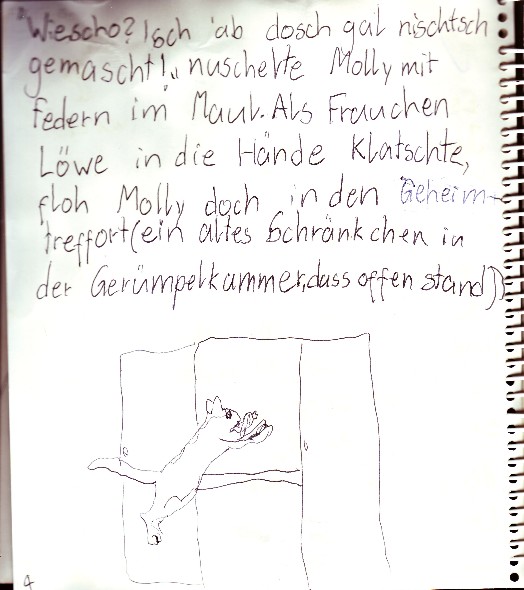 "Wiescho? Isch 'ab dosch gal nischtsch
gemascht!", nuschelte Molly mit
federn im Maul. Als Frauchen
Löwe in die Hände Klatschte,
floh Molly doch in den Geheim-
treffort (ein altes Schränkchen in
der Gerümpelkammer, dass offen stand))
4